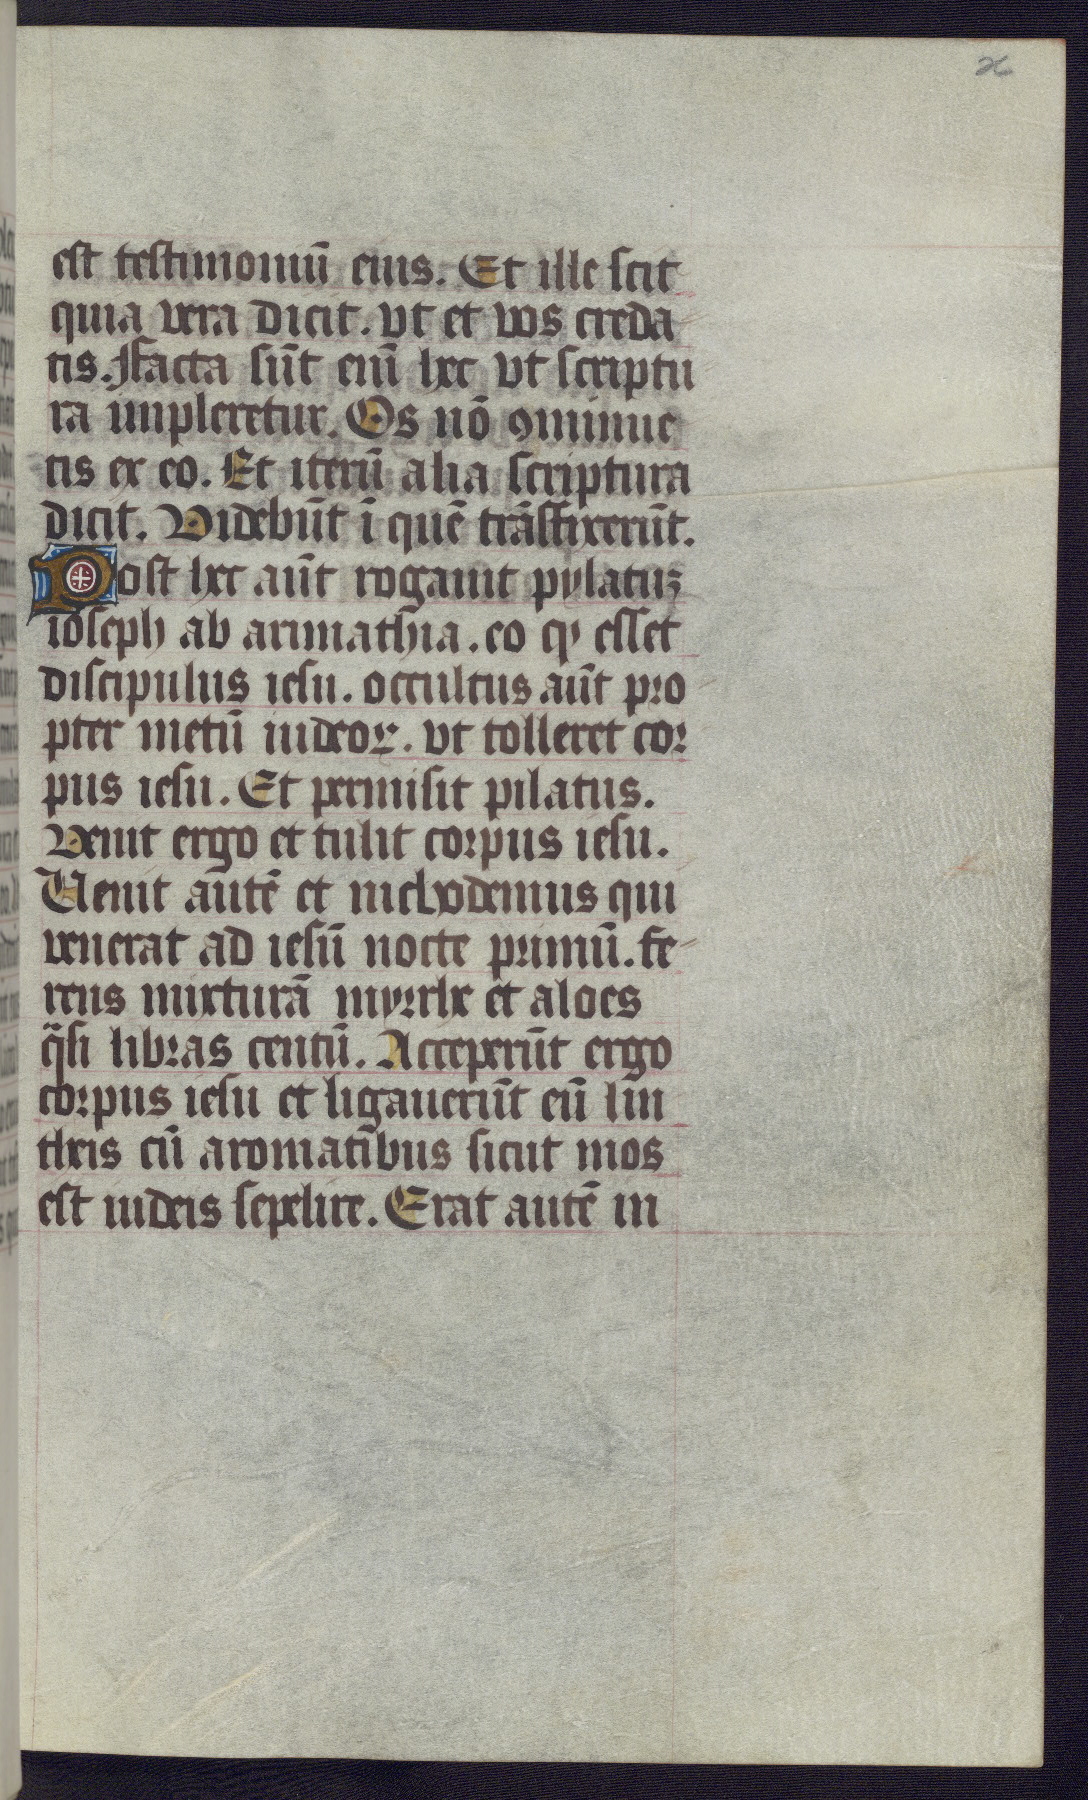 26
est testimoniū eius. Et ille scit
quia vera dicit. vt et vos creda
tis. Facta sūt eniū hec vt scriptu
ra impleretur. Os nō ꝯminue
tis ex eo. Et iterū alia scriptura
dicit. Videbūt ī quē trāsfixerūt.
Post hec aūt rogauit pylatuꝫ
ioseph ab arimathia. eo ꝙ esset
discipulus iesu. occultus aūt pro
pter metū iudeoꝝ. vt tolleret cor
pus iesu. Et permisit pilatus.
Venit ergo et tulit corpus iesu.
Uenit autē et nichodemus qui
venerat ad iesū nocte primū. fe-
rens mixturā myrrhe et aloes
q̄si libras centū. Acceperūt ergo
corpus iesu et ligauerūt eū lin
theis cū aromatibus sicut mos
est iudeis sepelire. Erat autē in